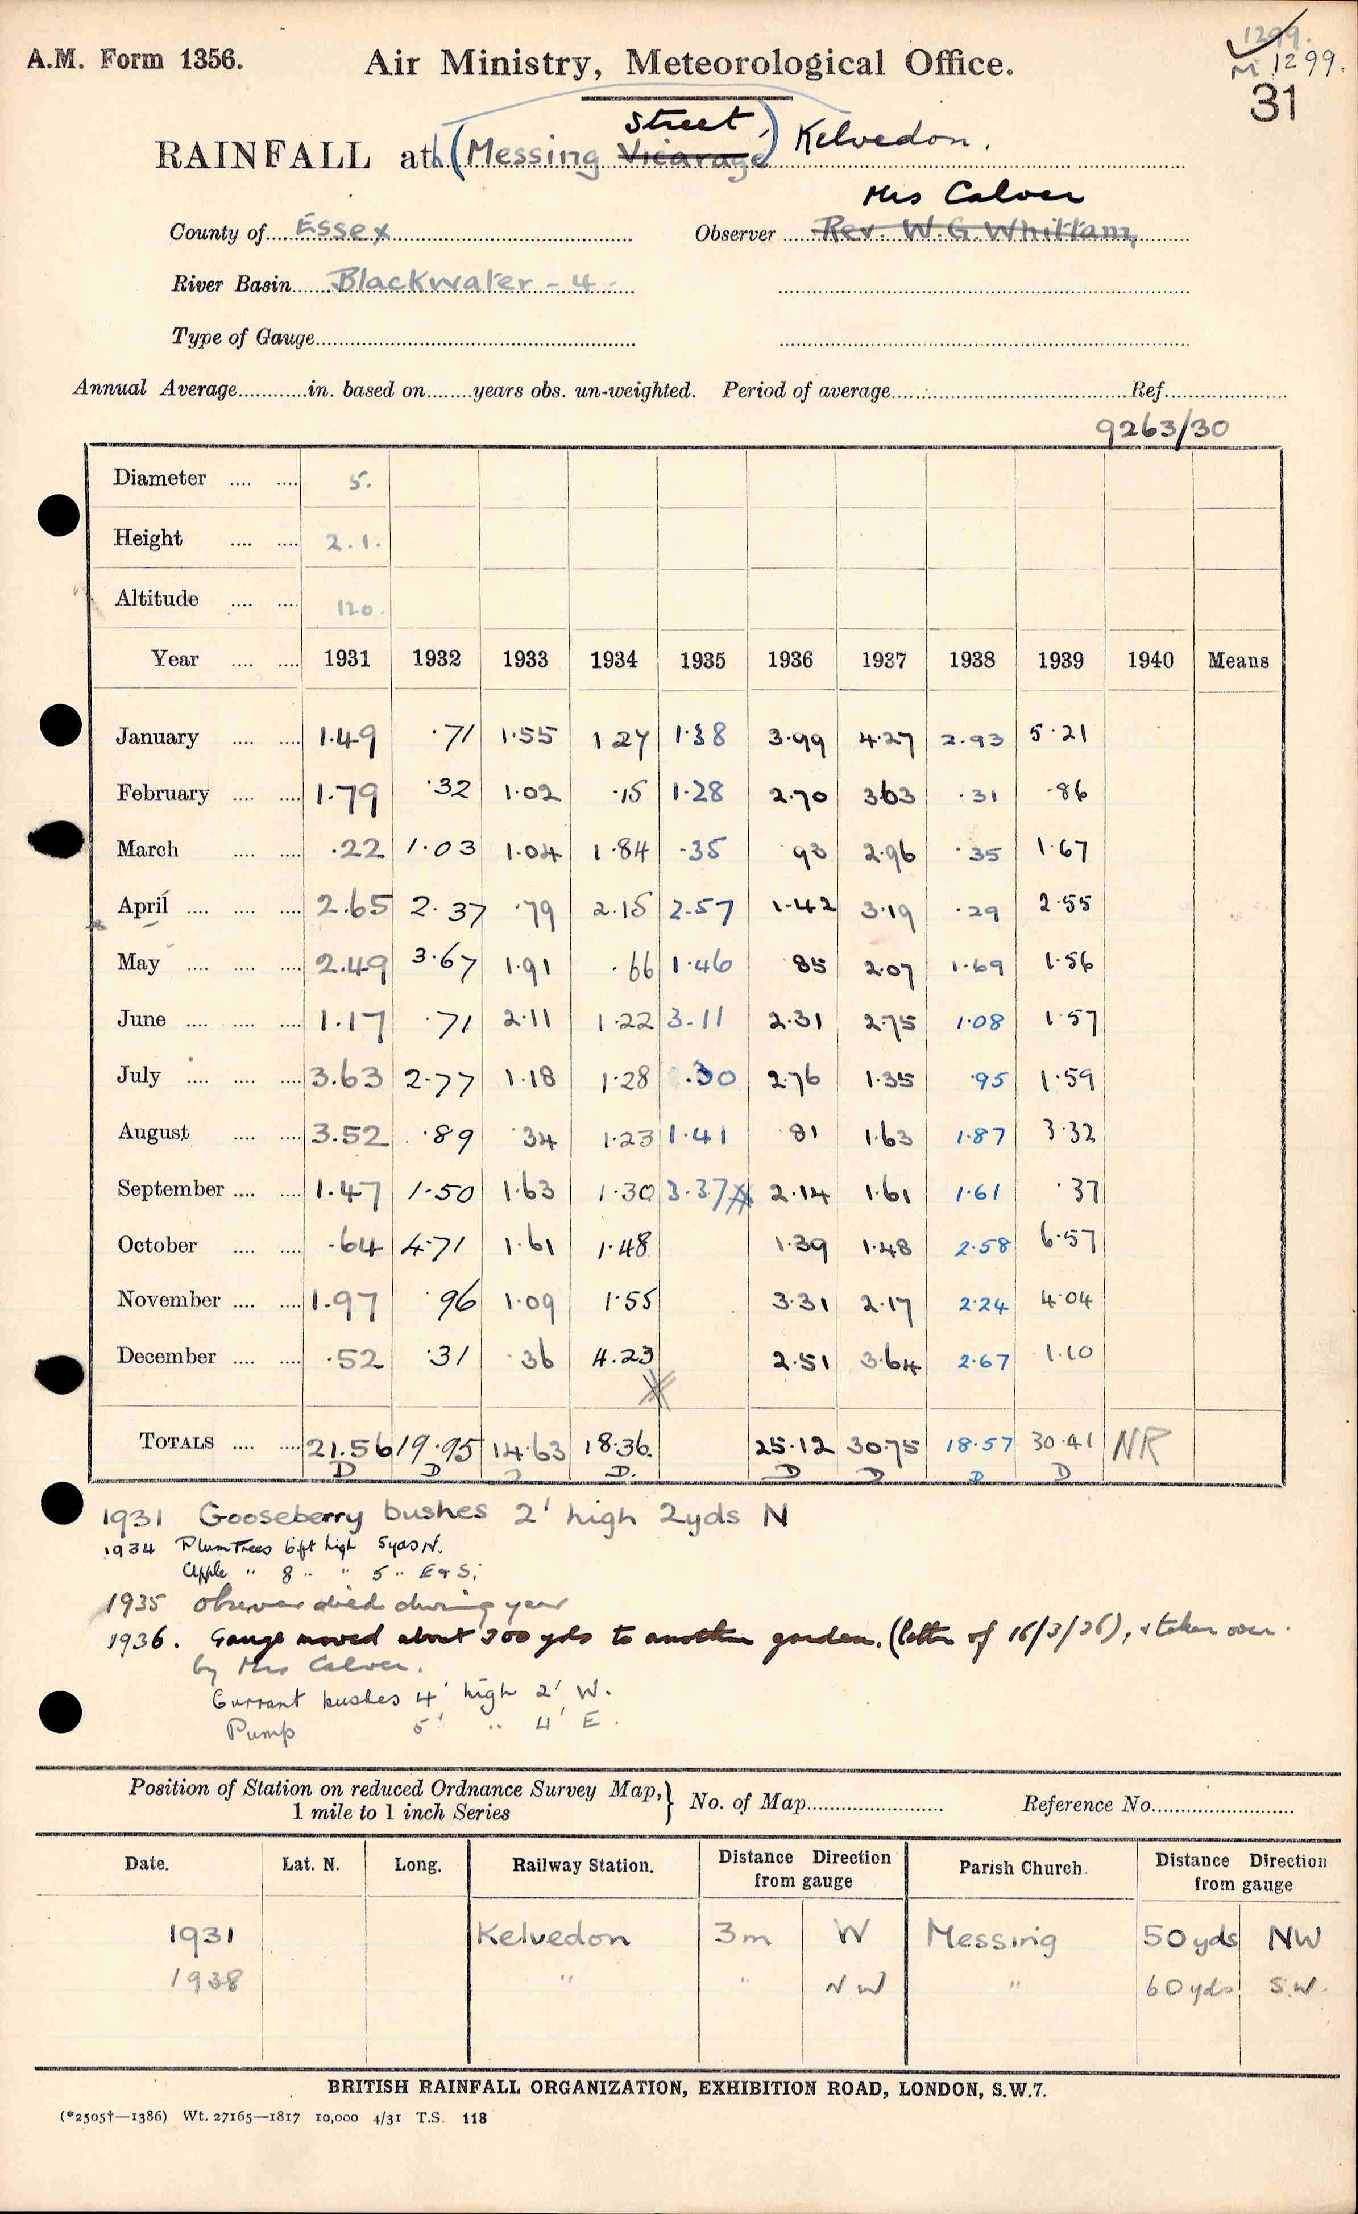 1299.
A.M. Form 1356. Air Ministry, Meteorological Office. M 1299.
31
Street,
RAINFALL at (Messing Vicarage) Kelvedon.
Mrs Calver
County of Essex Observer Rev. W.G. Whittam,
River Basin Blackwater - 4 -
Type of Gauge
Annual Average in. based on years obs. un-weighted. Period of average Ref.
9263/30
Diameter 5.
Height 2.1.
Altitude 120.
Year 1931 1932 1933 1934 1935 1936 1937 1938 1939 1940 Means
January 1.49 .71 1.55 1 27 1.38 3.99 4.27 2.93 5.21
February 1.79 .32 1.02 .15 1.28 2.70 3 63 .31 .86
March .22 1.03 1.04 1.84 .35 93 2.96 .35 1.67
April 2.65 2.37 .79 2.15 2.57 1.42 3.19 .29 2.55
May 2.49 3.67 1.91 .66 1.46 85 2.07 1.69 1.56
June 1.17 .71 2.11 1.22 3.11 2.31 2.75 1.08 1.57
July 3.63 2.77 1.18 1.28 .30 2.76 1.35 .95 1.59
August 3.52 .89 .34 1.23 1.41 81 1.63 1.87 3.32
September 1.47 1.50 1.63 1.30 3.37 2.14 1.61 1.61 .37
October .64 4.71 1.61 1.48 1.39 1.48 2.58 6.57
November 1.97 .96 1.09 1.55 3.31 2.17 2.24 4.04
December .52 .31 .36 4.23 2.51 3.64 2.67 1.10
TOTALS 21.56 19.95 14.63 18.36 25.12 30.75 18.57 30.41 NR
D D D D. D D D D
1931 Gooseberry bushes 2' high 2yds N
1934 Plum Trees 6ft high 5yds N.
Apple " 8 " " 5 " E & S.
1935 Observer died during year
1936. Gauge moved about 300 yds to another garden. (letter of 16/3/36), & taken over
by Mrs Calver.
Currant bushes 4' high 2' W.
Pump 5' " 4' E.
Position of Station on reduced Ordnance Survey Map, 1 mile to 1 inch Series } No. of Map Reference No.
Date. Lat. N. Long. Railway Station. Distance Direction from gauge Parish Church. Distance Direction from gauge
1931 Kelvedon 3m W Messing 50yds NW
1938 " " NW " 60yds S.W.
BRITISH RAINFALL ORGANIZATION, EXHIBITION ROAD, LONDON, S.W.7.
(*2505†—1386) Wt. 27165—1817 10,000 4/31 T.S. 118